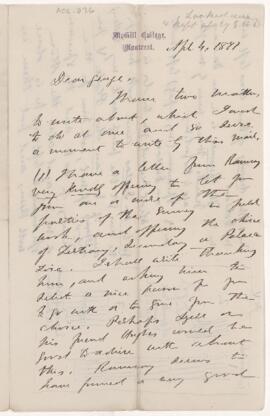 McGill College,
Montreal.
Apl 4, 1881
Dear George,
I have two matters
to write about, which I want
to do at once and so seize
a moment to write by this mail.
(1) I have a letter from Ramsay
very kindly offering to let you
join one or more of the
parties of the Survey in field
work, and offering the choice
of Tertiary, Secondary or Palaeo
zoic. I shall write thanking
him, and asking him to
select a nice person for you
to go with or to give you the
choice. Perhaps Lyell or
his friend Hughes would be
good to advise with about
this. Ramsay seems to
have formed a very good